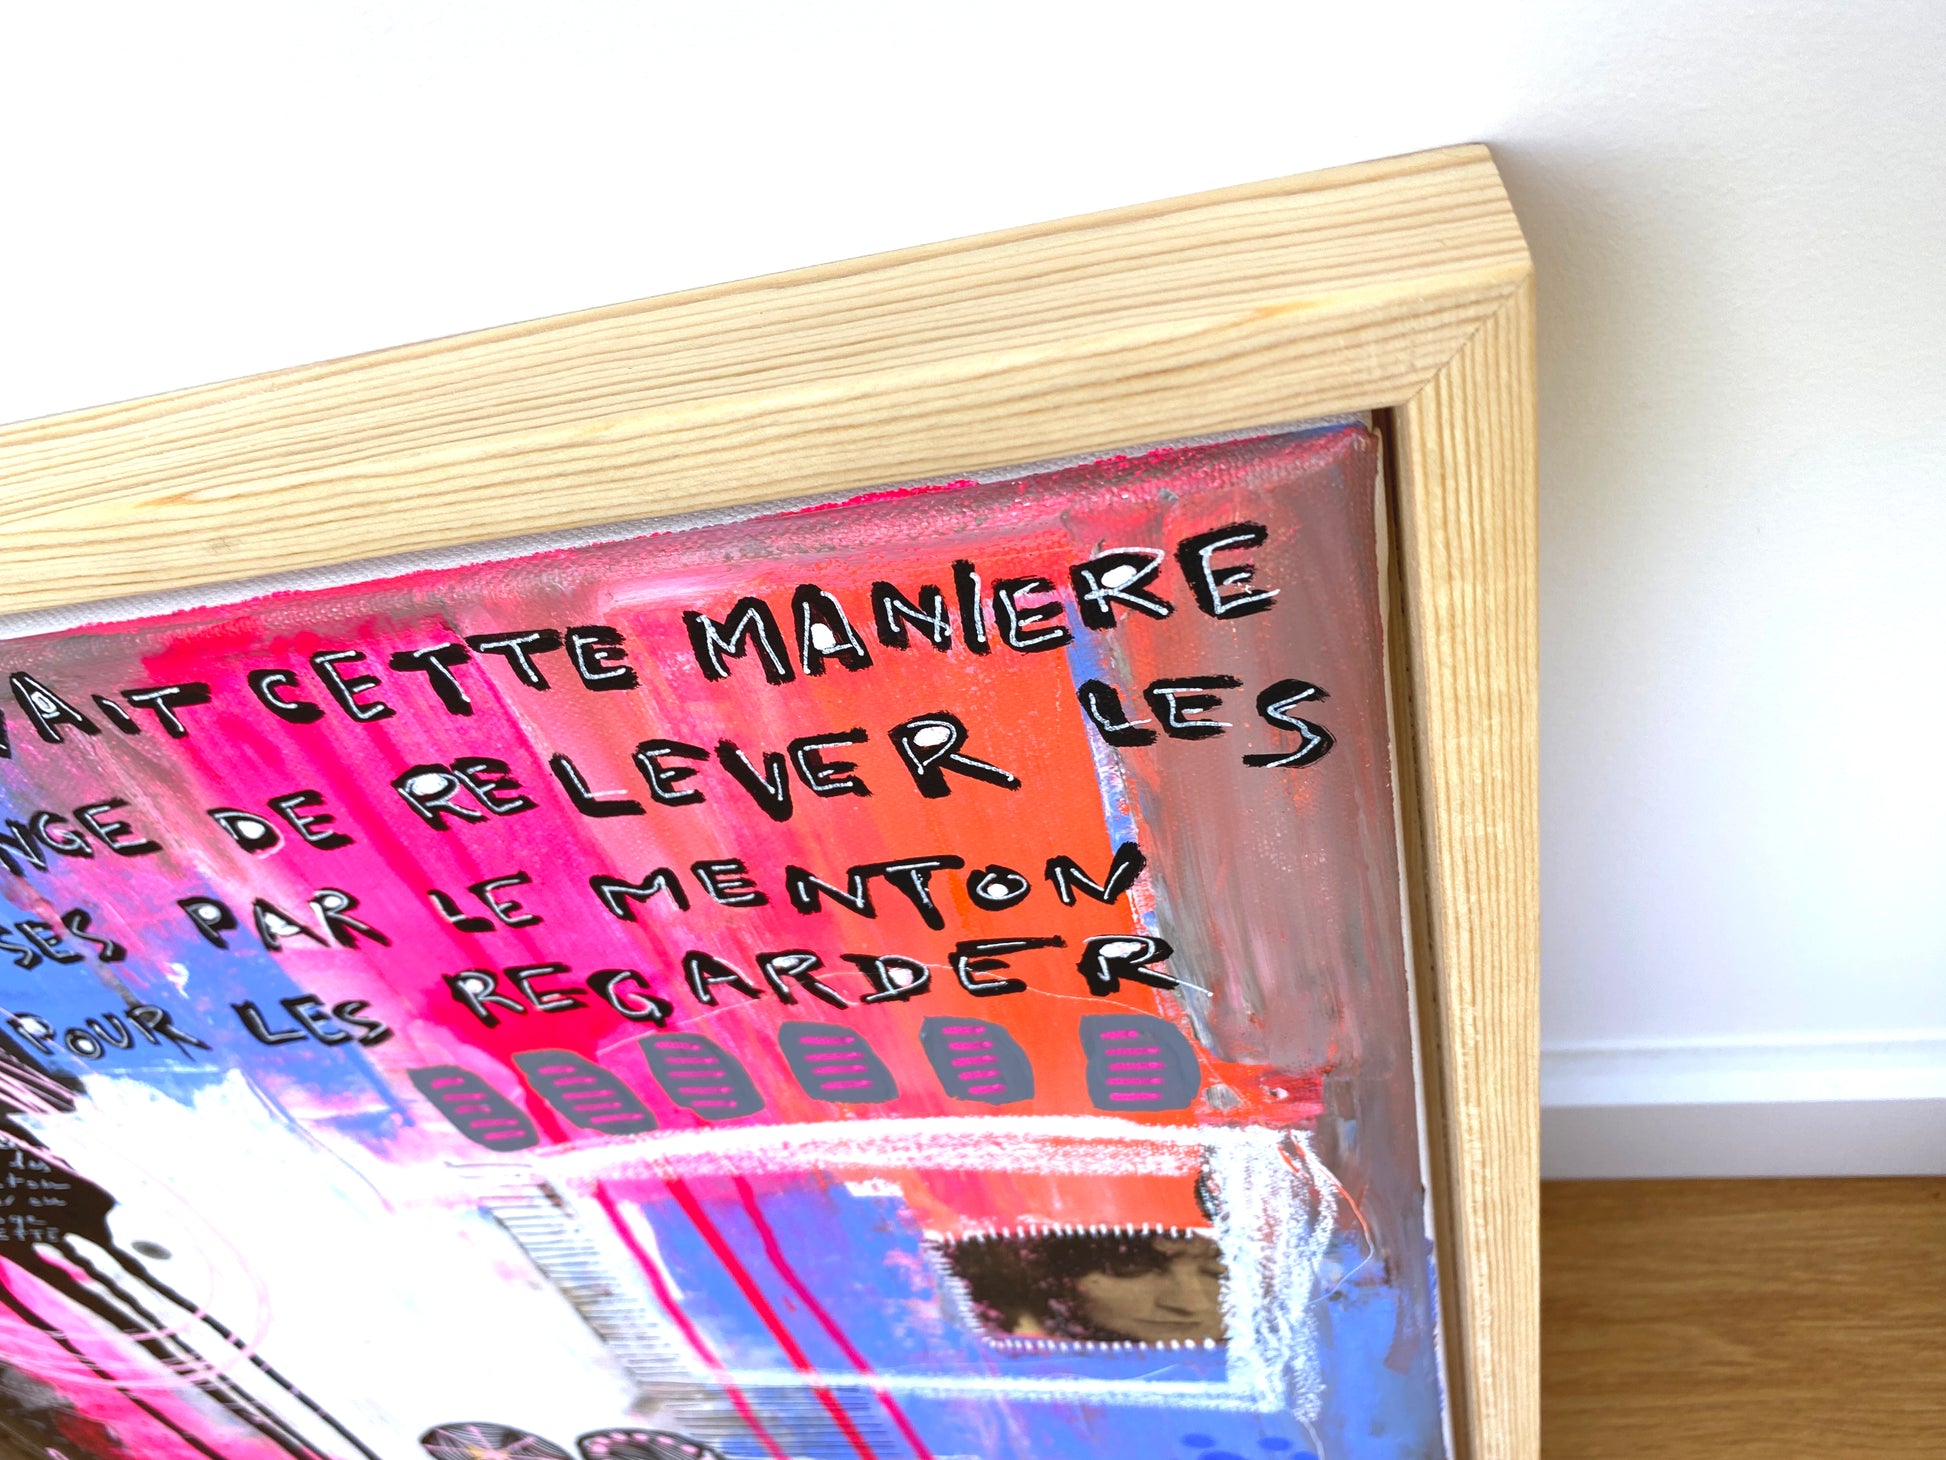 VAIT CETTE MANIERE
NGE DE RELEVER LES
SES PAR LE MENTON
POUR LES REGARDER